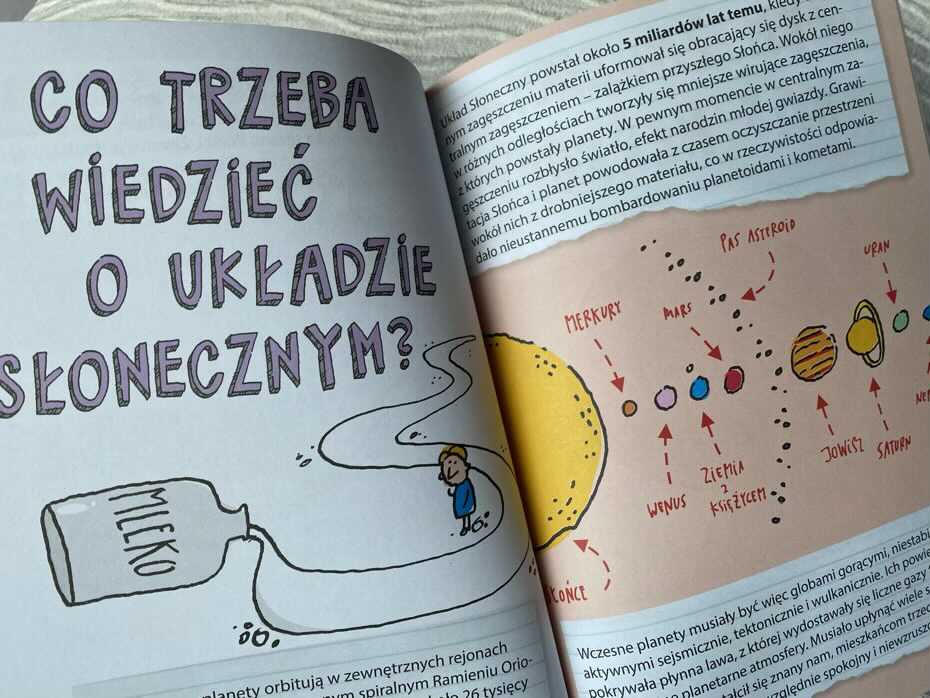 CO TRZEBA
WIEDZIEĆ
O UKŁADZIE
SŁONECZNYM?
MLEKO
planety orbitują w zewnętrznych rejonach
nym spiralnym Ramieniu Orio-
26 tysięcy
Układ Słoneczny powstał około 5 miliardów lat temu, kiedy
nym zagęszczeniu materii uformował się obracający się dysk z cen-
tralnym zagęszczeniem – zalążkiem przyszłego Słońca. Wokół niego
w różnych odległościach tworzyły się mniejsze wirujące zagęszczenia,
z których powstały planety. W pewnym momencie w centralnym za-
gęszczeniu rozbłysło światło, efekt narodzin młodej gwiazdy. Grawi-
tacja Słońca i planet powodowała z czasem oczyszczanie przestrzeni
wokół nich z drobniejszego materiału, co w rzeczywistości odpowia-
dało nieustannemu bombardowaniu planetoidami i kometami.
PAS ASTEROID
URAN
MERKURY
MARS
WENUS
ZIEMIA
Z
KSIĘŻYCEM
JOWISZ
SATURN
SŁOŃCE
Wczesne planety musiały być więc globami gorącymi, niestabi
aktywnymi sejsmicznie, tektonicznie i wulkanicznie. Ich powie
pokrywała płynna lawa, z której wydostawały się liczne gazy
planetarne atmosfery. Musiało upłynąć wiele
stał się znany nam, mieszkańcom trzec
względnie spokojny i niewzruszo